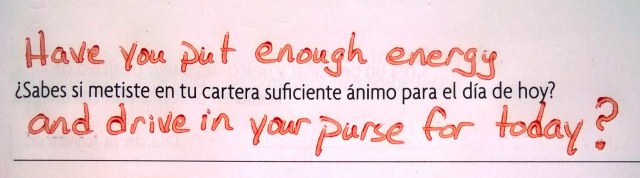 Have you put enough energy
¿Sabes si metiste en tu cartera suficiente ánimo para el día de hoy?
and drive in your purse for today?